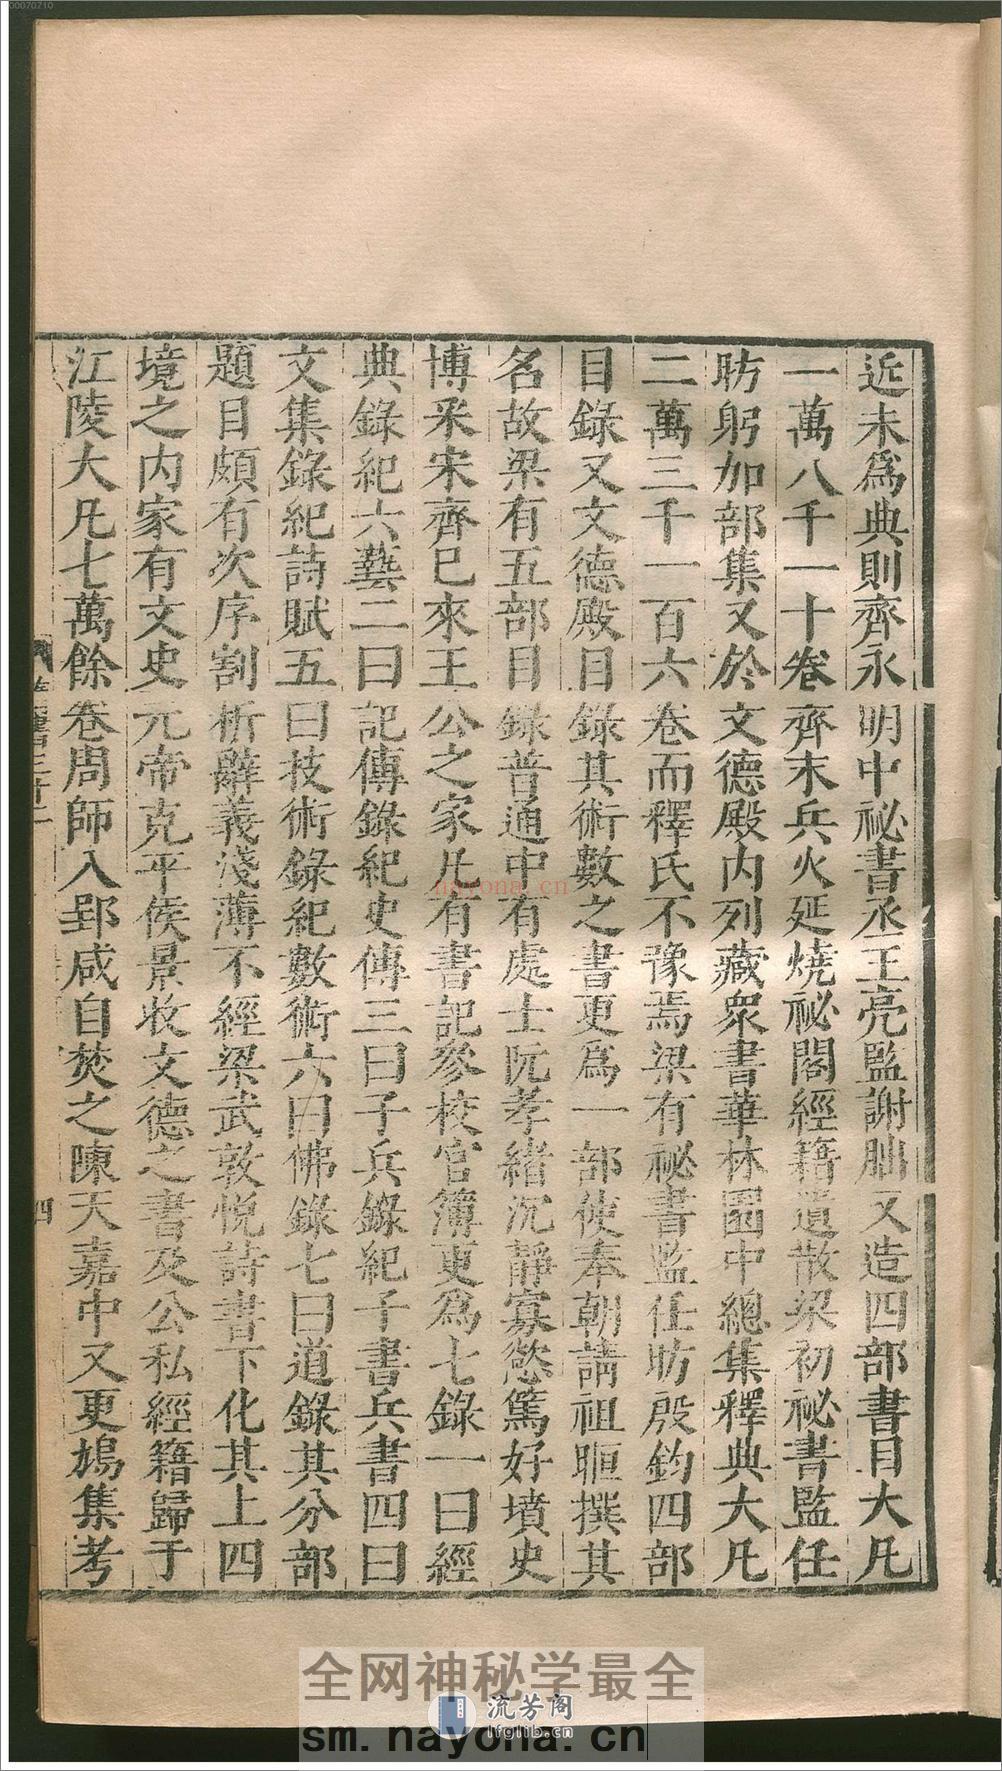 近未爲典則齊永明中秘書丞王亮監謝朏又造四部書目大凡
一萬八千一十卷齊末兵火延燒秘閣經籍遺散梁初秘書監任
昉躬加部集又於文德殿內列藏衆書華林園中總集釋典大凡
二萬三千一百六卷而釋氏不豫焉梁有秘書監任昉殷鈞四部
目錄又文德殿目錄其術數之書更爲一部使奉朝請祖暅撰其
名故梁有五部目錄普通中有處士阮孝緒沉靜寡慾篤好墳史
博采宋齊已來王公之家凡有書記參校官簿更爲七錄一曰經
典錄紀六藝二曰記傳錄紀史傳三曰子兵錄紀子書兵書四曰
文集錄紀詩賦五曰技術錄紀數術六曰佛錄七曰道錄其分部
題目頗有次序割析辭義淺薄不經梁武敦悅詩書下化其上四
境之內家有文史元帝克平侯景收文德之書及公私經籍歸于
江陵大凡七萬餘卷周師入郢咸自焚之陳天嘉中又更鳩集考
四
00070710
nayona.cn
全网神秘学最全
流芳阁
lfglib.cn
sm.nayona.cn